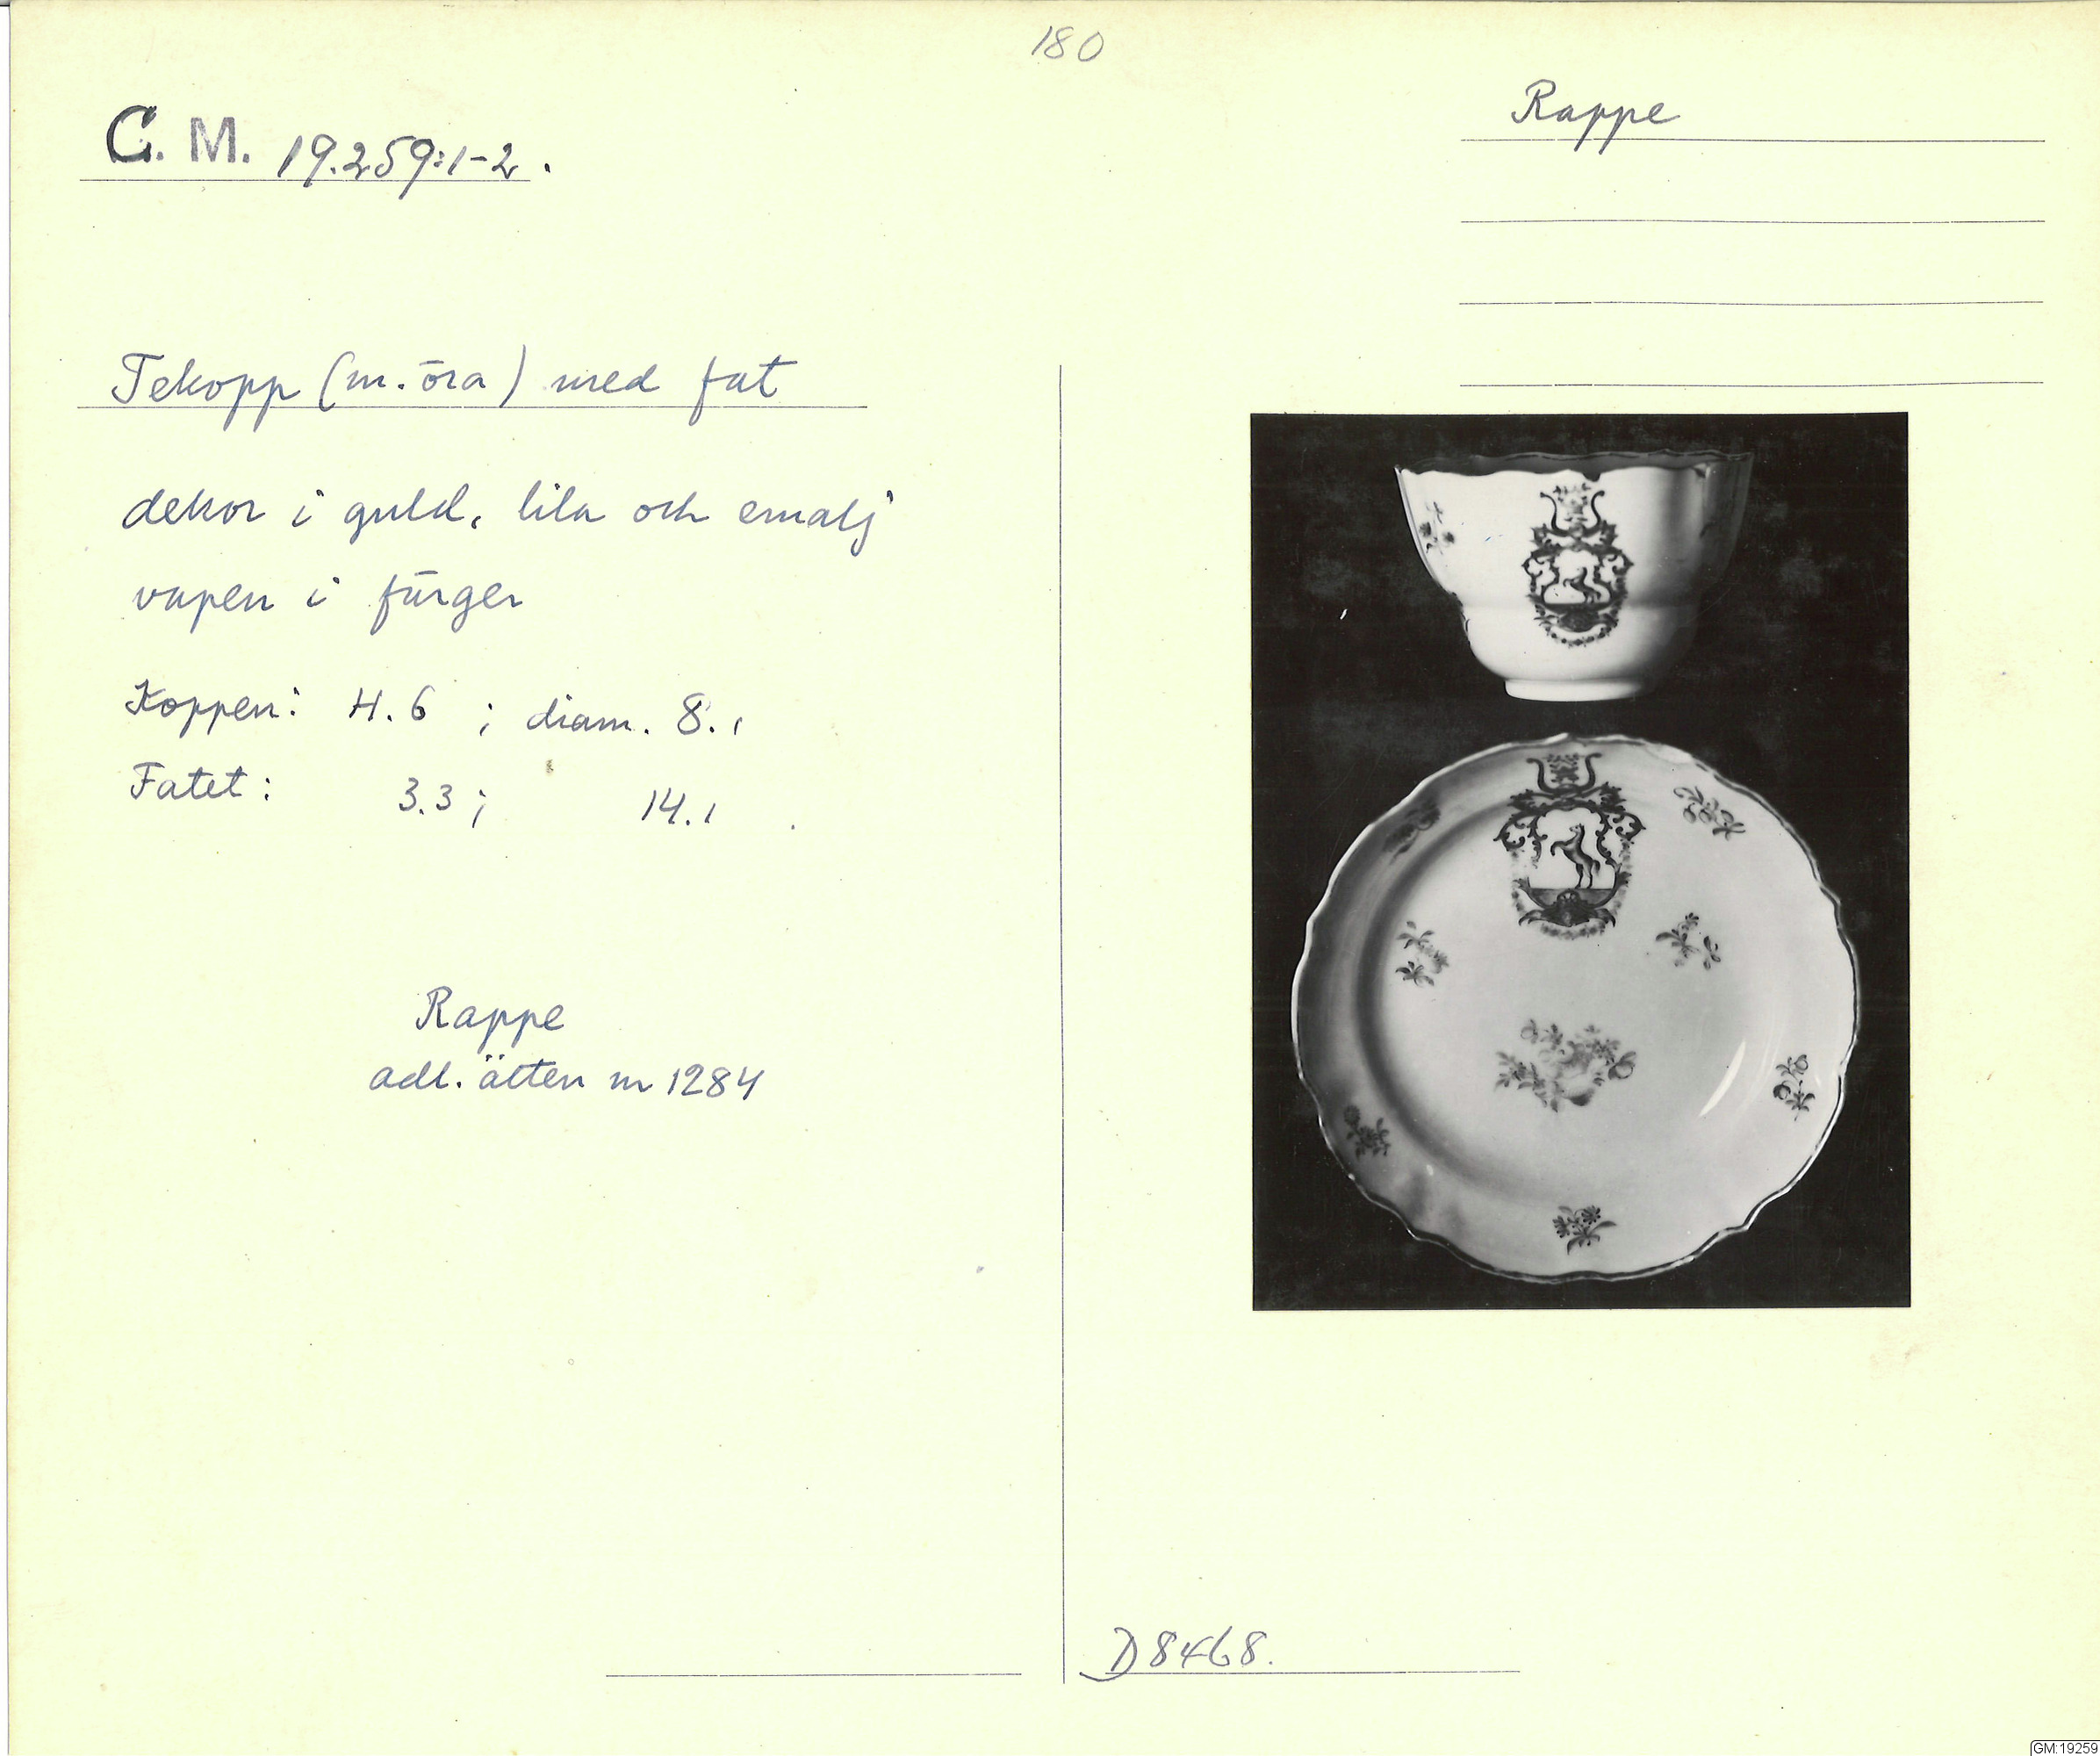 180
G. M. 19.259:1-2.
Rappe
Tekopp (m. öra) med fat
dekor i guld, lila och emalj
vapen i färger
Koppen: H. 6 ; diam. 8.1
Fatet: 3.3 ; 14.1
Rappe
adl. ätten nr 1284
D 8468.
GM:19259